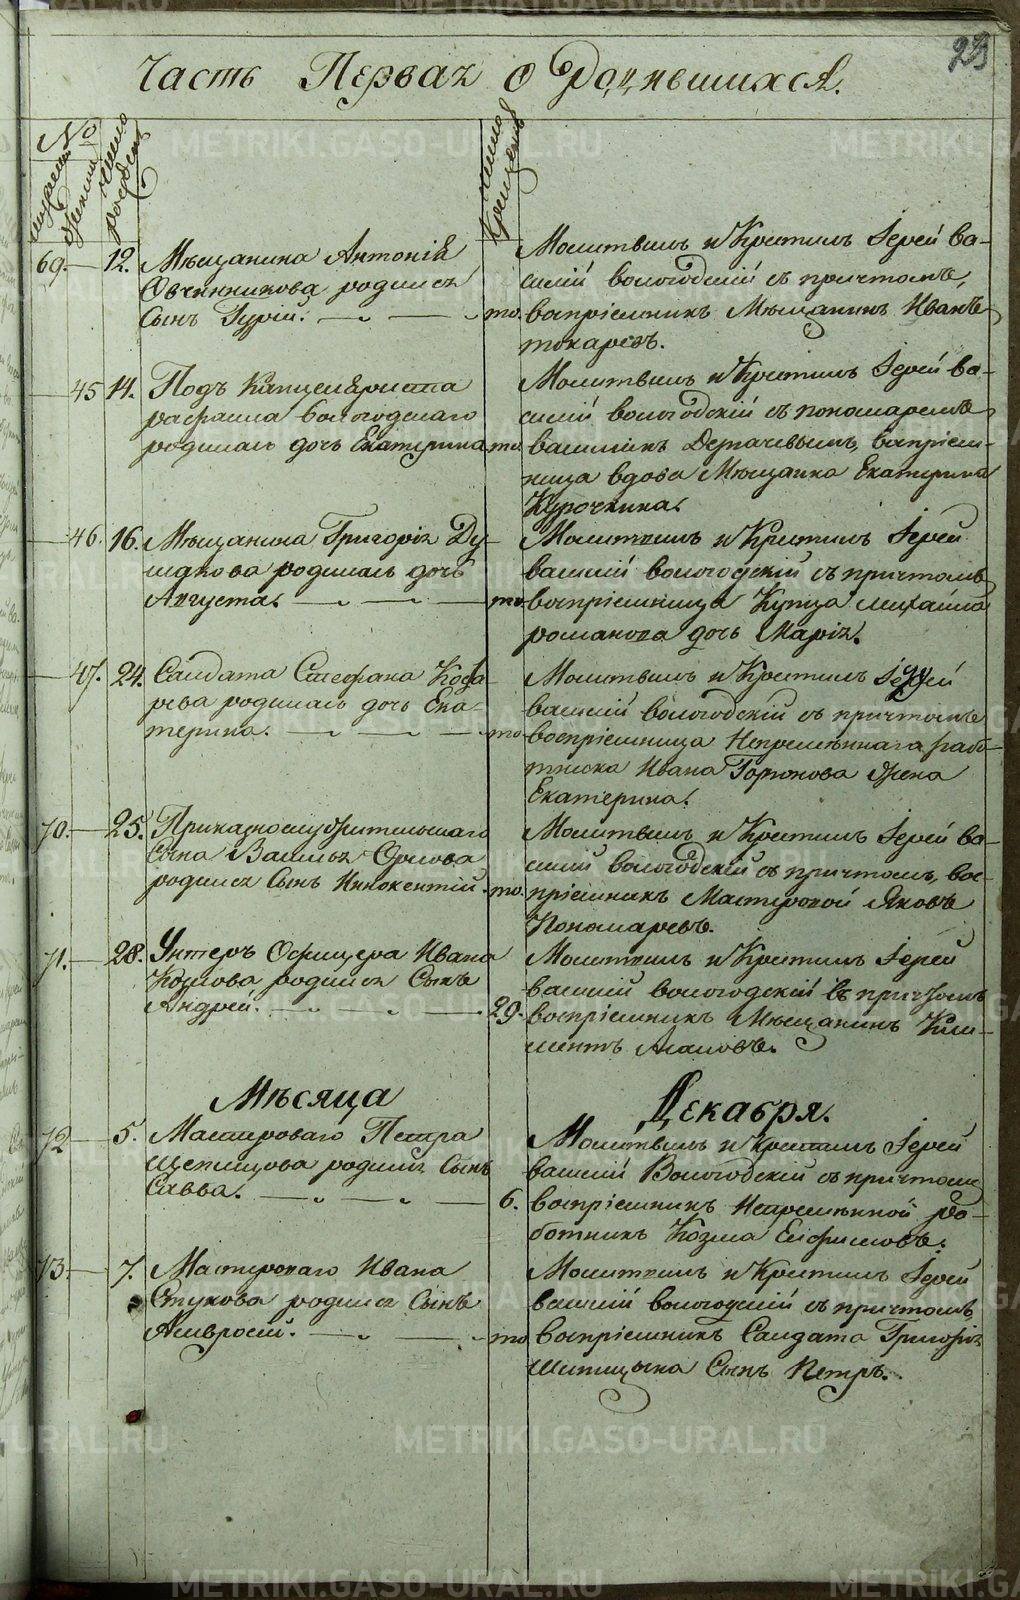 23
Часть Первая о Родившихся.
№
мужеска
женска
число рождения
число крещения
69. 12. Мѣщанина Антонія
Овчинникова родился
Сынъ Гурій. то.
Молитвилъ и Крестилъ Іерей Ва-
силій Вологодскій съ причтомъ,
воспріемникъ Мѣщанинъ Иванъ
токаревъ.
45 14. Подъ Канцеляриста
родилась дочь Екатерина то
Молитвилъ и Крестилъ Іерей ва-
силій вологодскій съ пономаремъ
воспріем-
ница вдова Мѣщанка Екатерина
Курочкина.
46. 16. Мѣщанина Григорія Ду-
шакова родилась дочь
Августа. то
Молитвилъ и Крестилъ Іерей
василій вологодскій съ причтомъ
воспріемница Купца михайла
романова дочь Марія.
47. 24. Салдата Стефана
родилась дочь Ека-
терина. то
Молитвилъ и Крестилъ Іерей
василій вологодскій съ причтомъ
воспріемница Непремѣннаго рабо-
тника Ивана Горюнова жена
Екатерина.
70. 25. Приказнослужительскаго
Сына Василья Орлова
родился Сынъ Инокентій. то.
Молитвилъ и Крестилъ Іерей ва-
силій вологодскій съ причтомъ, вос-
пріемникъ Мастеровой Яковъ
Пономаревъ.
71. 28. Унтеръ Офицера Ивана
Козлова родился Сынъ
Андрей. 29.
Молитвилъ и Крестилъ Іерей
василий вологодскій съ причтомъ
воспріемникъ Мѣщанинъ Кли-
ментъ
Мѣсяца Декабря.
72 5. Мастероваго Петра
родился Сынъ
Савва. 6.
Молитвилъ и Крестилъ Іерей
василій Вологодскій съ причтомъ
воспріемникъ Непремѣнной ра-
ботникъ Козма Ефимовъ.
73 7. Мастероваго Ивана
Стукова родился Сынъ
Амвросій. то
Молитвилъ и Крестилъ Іерей
василій вологодскій съ причтомъ
воспріемникъ Салдата Григорія
Шипицына Сынъ Петръ.
METRIKI.GASO-URAL.RU